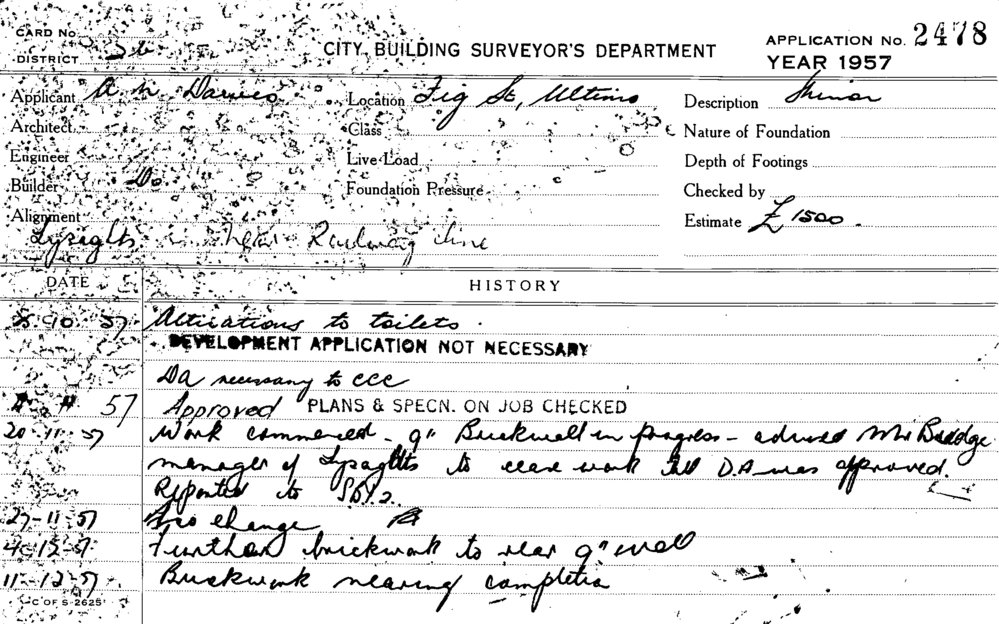 CARD No.
DISTRICT
CITY BUILDING SURVEYOR'S DEPARTMENT
APPLICATION No. 2478
YEAR 1957
Applicant A N Davies
Location Fig St, Ultimo
Description Minor
Architect
Class
Nature of Foundation
Engineer
Live Load
Depth of Footings
Builder Do
Foundation Pressure
Checked by
Alignment
Estimate £1500.
Lysaghts near Railway line
DATE
HISTORY
10 57 Alterations to toilets.
DEVELOPMENT APPLICATION NOT NECESSARY
DA necessary to CCC
57 Approved PLANS & SPECN. ON JOB CHECKED
20-11-57 Work commenced - 9" Brickwall in progress - advised Mr
manager of Lysaghts to cease work till D.A was approved.
Reported to
27-11-57 No change
4-12-57 Further brickwork to rear 9" wall
11-12-57 Brickwork nearing completion
C OF S-2625